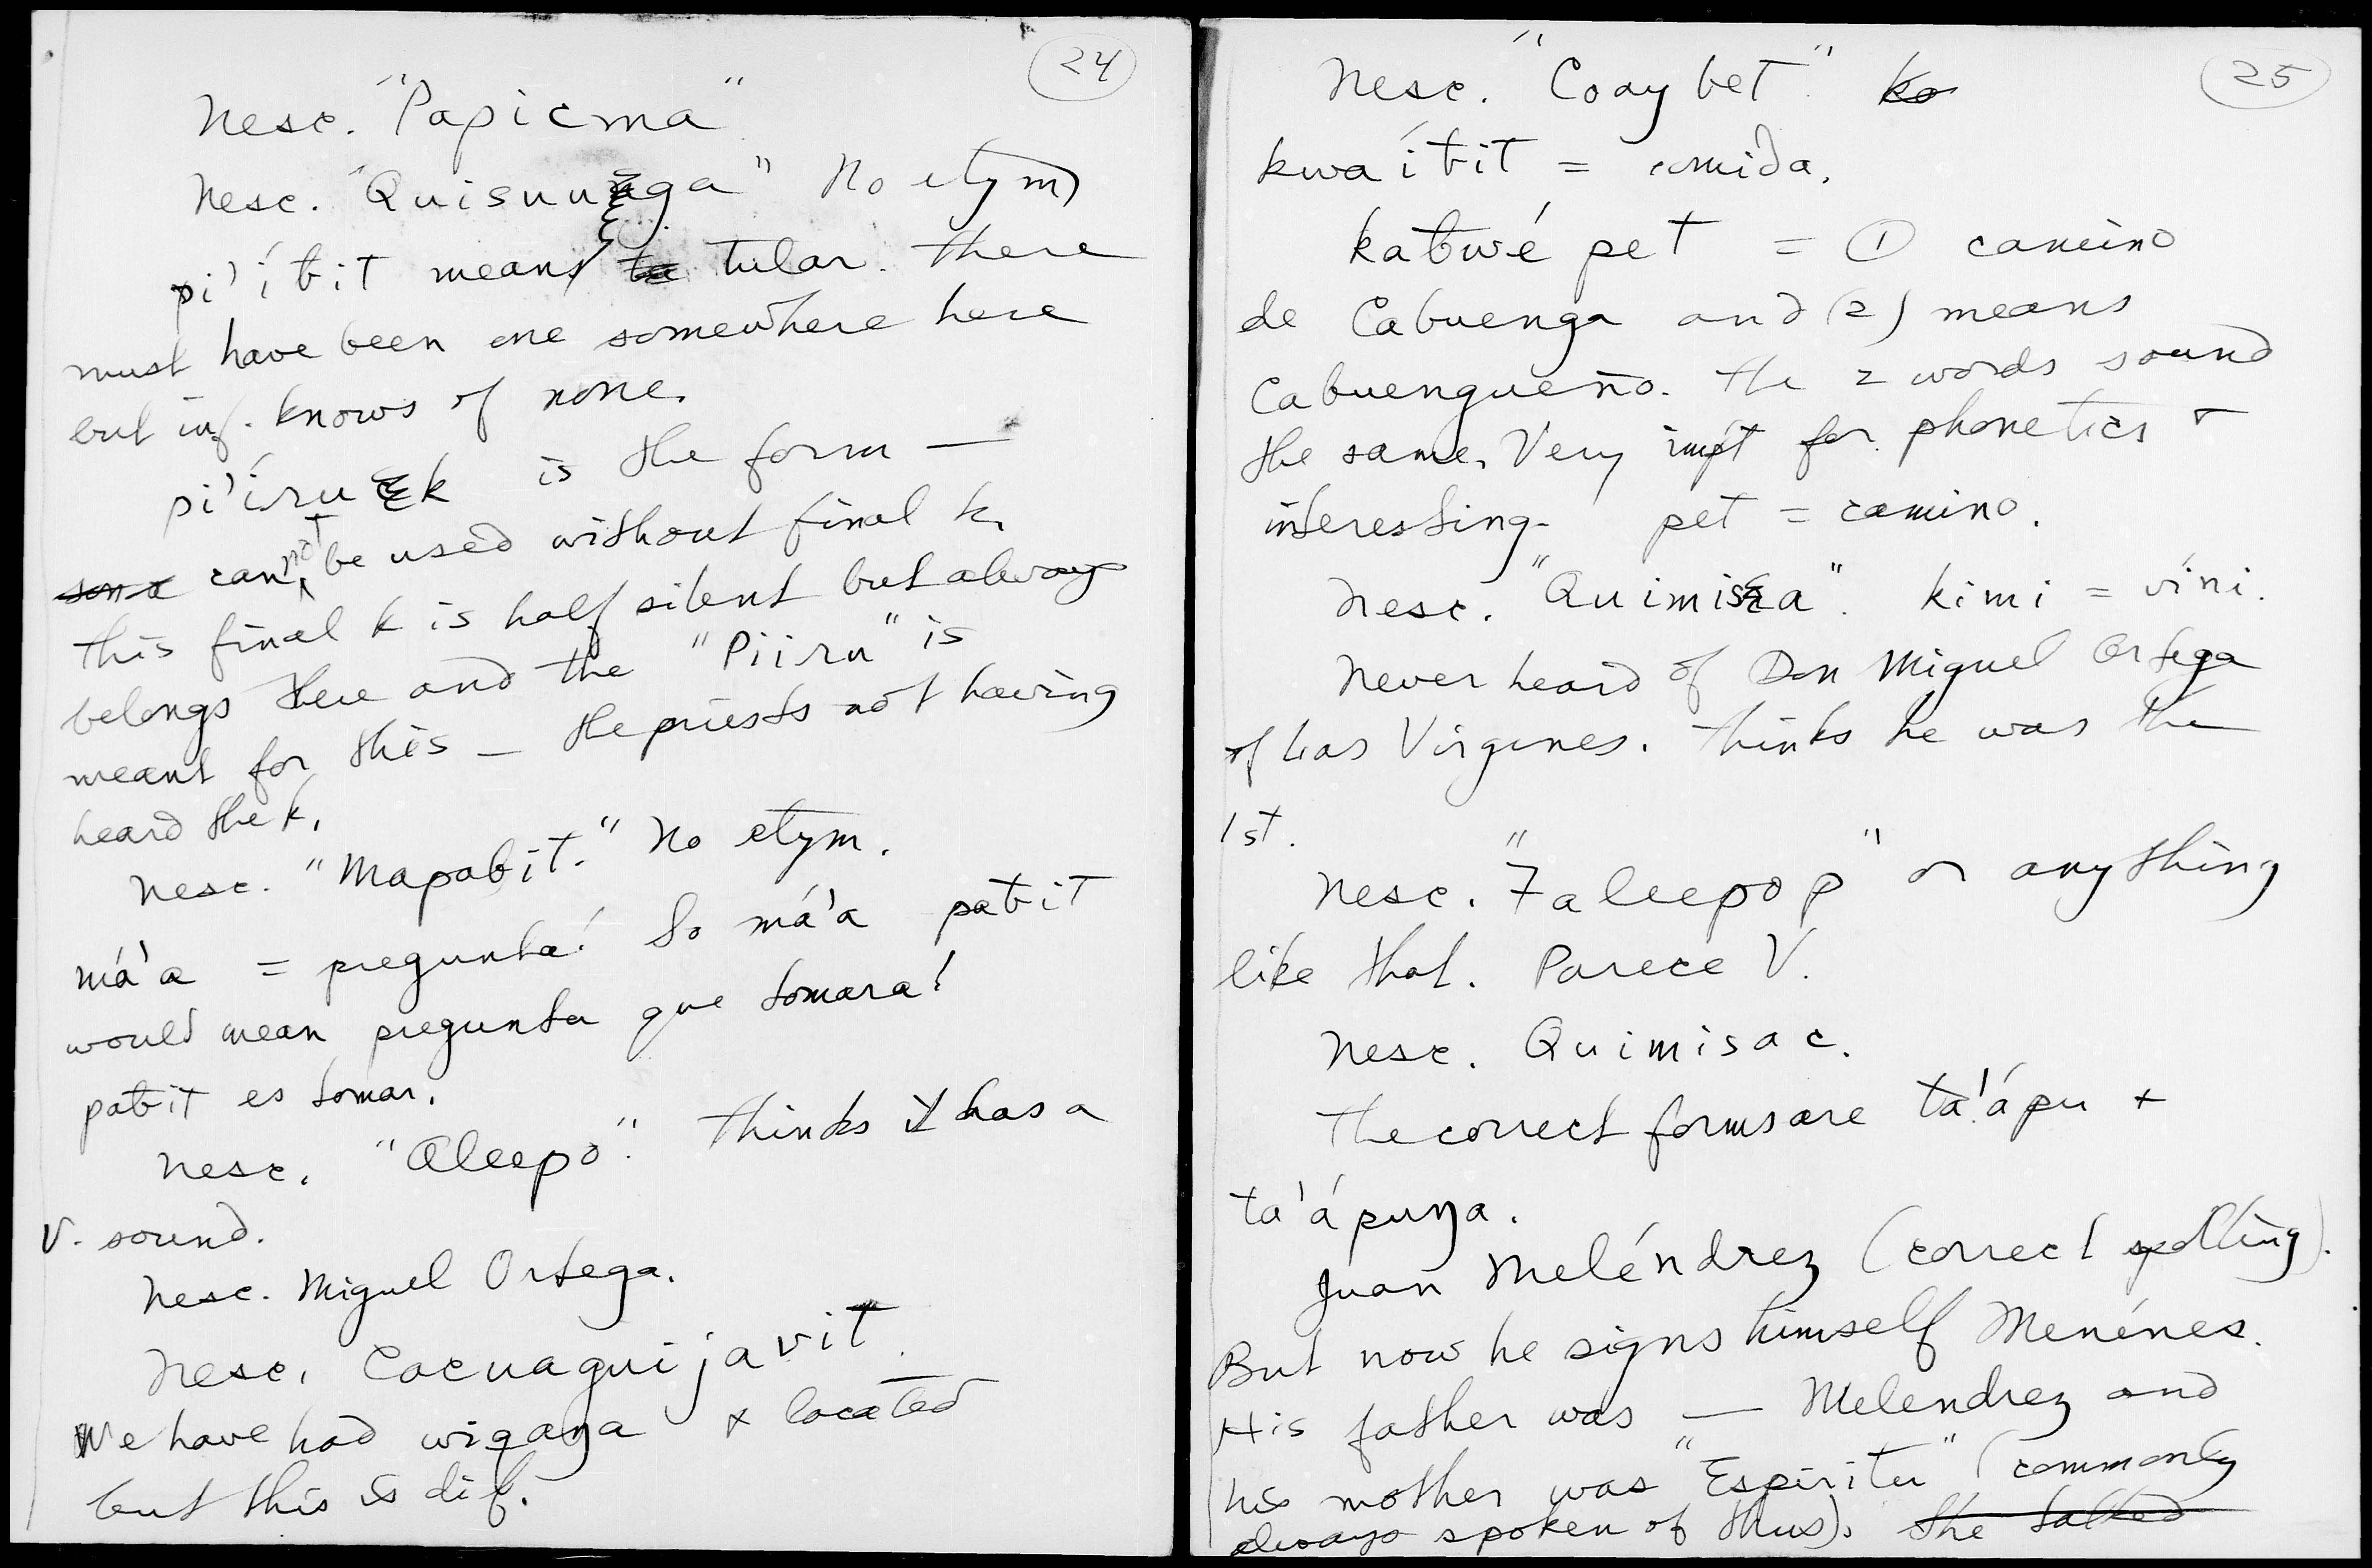 24
Nesc. "Papicma"
Nesc. "Quisuunga" No etym
pi'íbit means tular. There
must have been one somewhere here
but inf. knows of none.
pi'íru k is the form —
can not be used without final k.
This final k is half silent but always
belongs there and the "Piiru" is
meant for this — the priests not having
heard the k.
Nesc. "Mapabit." No etym.
má'a = pregunta! So má'a pabit
would mean pregunta que tomara!
pabit es tomar.
Nesc. "Aleepo". Thinks it has a
V. sound.
Nesc. Miguel Ortega.
Nesc. Cacuaguijavit.
We have had wiqaŋa & located
but this is dif.
25
Nesc. "Coaybet" ko
kwaíbit = comida.
kabwé pet = ① camino
de Cabuenga and (2) means
Cabuengueño. The 2 words sound
the same. Very impt for phonetics &
interesting. pet = camino.
Nesc. "Quimisa". kimi = víni.
Never heard of Don Miguel Ortega
of Las Virgenes. Thinks he was the
1st.
Nesc. "Taleepop" or anything
like that. Parece V.
Nesc. Quimisac.
The correct forms are ta'ápu &
ta'ápuŋa.
Juan Meléndrez (correct spelling).
But now he signs himself Menénes.
His father was — Melendrez and
his mother was "Espíritu" (commonly
always spoken of thus). She talked